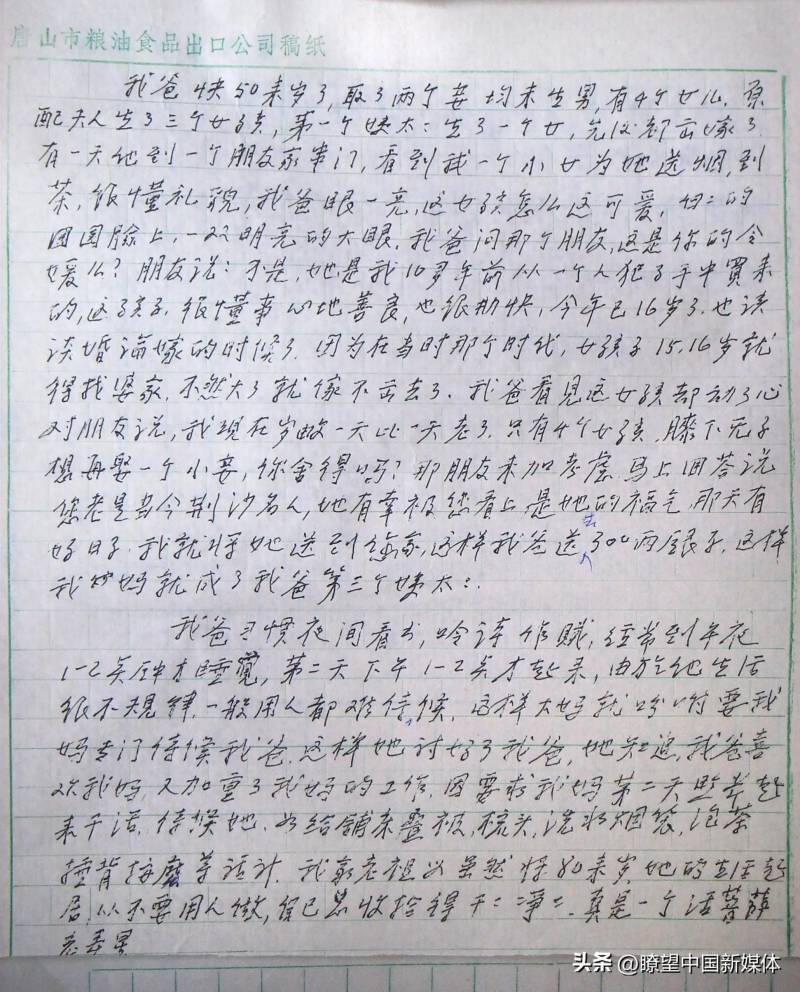 唐山市粮油食品出口公司稿纸
我爸快50来岁了,取了两个妾均未生男,有4个女儿.原
配夫人生了三个女孩,第一个姨太:生了一个女,先后都出嫁了.
有一天他到一个朋友家串门,看到我一个小女为他送烟,到
茶,很懂礼貌,我爸眼一亮,这女孩怎么这可爱,
团团脸上,一双明亮的大眼.我爸问那个朋友,这是你的令
媛么?朋友说:不是,她是我10多年前从一个人犯子手中買来
的,这孩子.很懂事心地善良,也很勤快,今年已16岁了.也该
谈婚論嫁的时候了.因为在当时那个时代,女孩子15.16岁就
得找婆家,不然大了就傢不出去了.我爸看见这女孩却动了心
对朋友说,我现在岁数一天比一天老了.只有4个女孩,膝下无子
想再娶一个小妾,你舍得吗?那朋友未加考虑马上回答说
您老是当今荆沙名人,她有幸被您看上是她的福气那天有
好日子.我就将她送到您家,这样我爸送去300两银子,这样
我妈就成了我爸第三个姨太:.
我爸习惯夜间看书,吟诗作赋,经常到半夜
1-2点钟才睡觉,第二天下午1-2点才起来,由於他生活
很不规律,一般用人都难侍候,这样大妈就吩咐要我
妈专门侍候我爸.这样她讨好了我爸,她知道,我爸喜
欢我妈.又加重了我妈的工作.因要求我妈第二天照常起
来干活.侍候她.如给铺床叠被,梳头,洗水烟袋,泡茶
捶背按摩等活计.我 老祖 虽然 80来岁,她的生活起
居,从不要用人做,自己总收拾得干:净:.真是一个活菩萨
老寿星
头条@瞭望中国新媒体